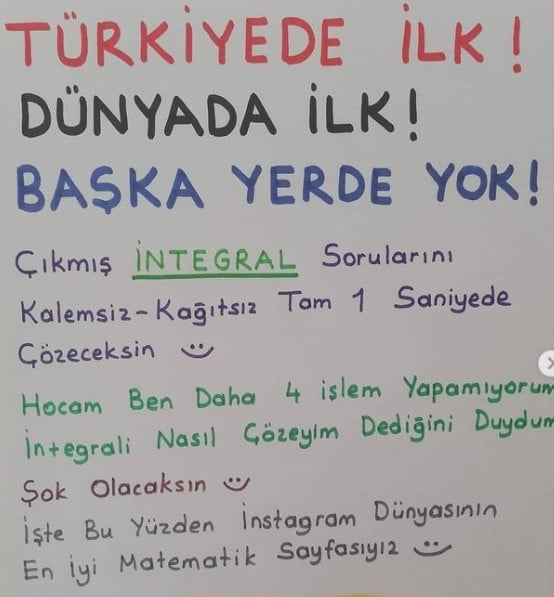 TÜRKİYEDE İLK!
DÜNYADA İLK!
BAŞKA YERDE YOK!
Çıkmış İNTEGRAL Sorularını
Kalemsiz-Kağıtsız Tam 1 Saniyede
Çözeceksin
Hocam Ben Daha 4 işlem Yapamıyorum
İntegrali Nasıl Çözeyim Dediğini Duydum
Şok Olacaksın
İşte Bu Yüzden İnstagram Dünyasının
En İyi Matematik Sayfasıyız